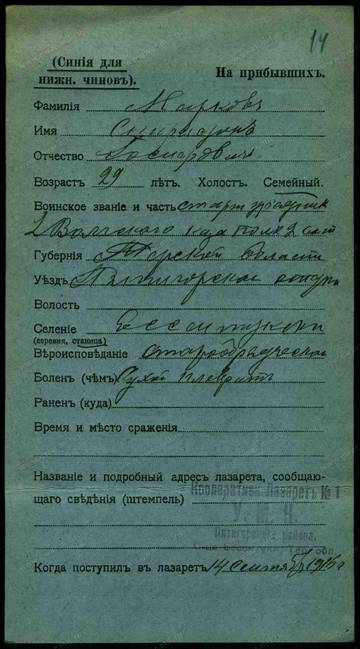 14
(Синія для
нижн. чиновъ).
На прибывшихъ.
Фамилія Марковъ
Имя Спиридонъ
Отчество
Возрастъ 29 лѣтъ. Холост. Семейный.
Воинское званіе и часть старш урядник
2 Волгского каз полка 2 сот
Губернія Терской области
Уѣздъ Пятигорскаго отдѣла
Волость
Селеніе Ессентуки
(деревня, станица)
Вѣроисповѣданіе старообрядческое
Боленъ (чѣмъ) Сухой плеврит
Раненъ (куда)
Время и мѣсто сраженія
Названіе и подробный адресъ лазарета, сообщаю-
щаго свѣдѣнія (штемпель)
Кооператив. Лазаретъ № 1
Пятигорскаго района.
Когда поступилъ въ лазаретъ 14 сентября